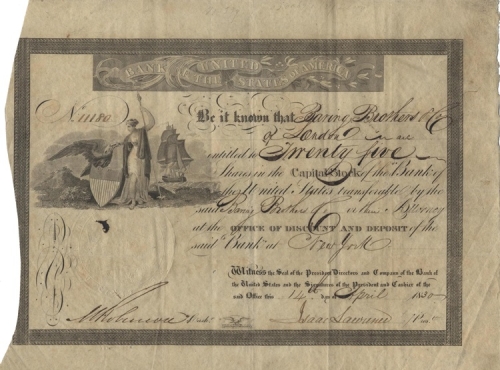 BANK OF THE UNITED STATES OF AMERICA
Be it known that Baring Brothers & Co
of London are
entitled to Twenty five
Shares in the Capital Stock of the Bank of
the United States transferable by the
said Baring Brothers & Co or their Attorney
at the OFFICE OF DISCOUNT AND DEPOSIT of the
said Bank at New York
Witness the Seal of the President Directors and Company of the Bank of
the United States and the Signatures of the President and Cashier of the
said Office this 14th day of April 1830
Isaac Lawrence